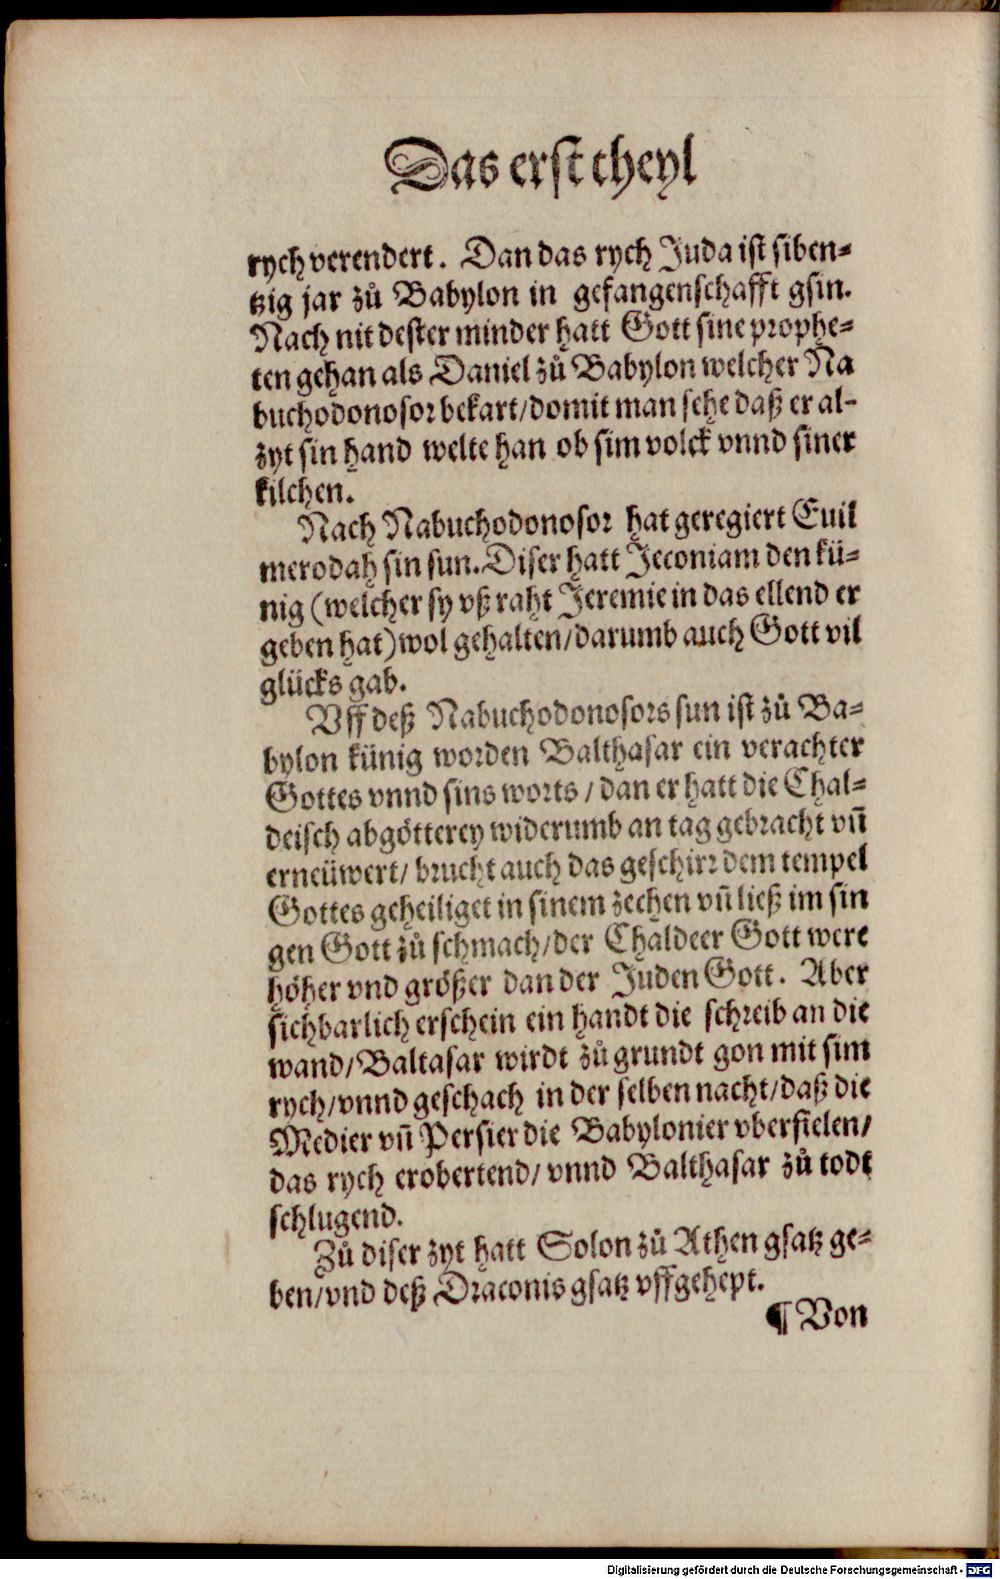 Das erst theyl
rych verendert. Dan das rych Juda ist siben⸗
tzig jar zů Babylon in gefangenschafft gsin.
Nach nit dester minder hatt Gott sine prophe⸗
ten gehan als Daniel zů Babylon welcher Na
buchodonosor bekart/domit man sehe daß er al-
zyt sin hand welte han ob sim volck vnnd siner
kilchen.
Nach Nabuchodonosor hat geregiert Euil
merodah sin sun. Diser hatt Jeconiam den kü⸗
nig (welcher sy vß raht Jeremie in das ellend er
geben hat) wol gehalten/darumb auch Gott vil
glücks gab.
Vff deß Nabuchodonosors sun ist zů Ba⸗
bylon künig worden Balthasar ein verachter
Gottes vnnd sins worts / dan er hatt die Chal⸗
deisch abgötterey widerumb an tag gebracht vñ
erneüwert/ brucht auch das geschirr dem tempel
Gottes geheiliget in sinem zechen vñ ließ im sin
gen Gott zů schmach/der Chaldeer Gott were
höher vnd größer dan der Juden Gott. Aber
sichbarlich erschein ein handt die schreib an die
wand/Baltasar wirdt zů grundt gon mit sim
rych/vnnd geschach in der selben nacht/daß die
Medier vñ Persier die Babylonier vberfielen/
das rych erobertend/ vnnd Balthasar zů todt
schlugend.
Zů diser zyt hatt Solon zů Athen gsatz ge⸗
ben/vnd deß Draconis gsatz vffgehept.
¶ Von
Digitalisierung gefördert durch die Deutsche Forschungsgemeinschaft - DFG